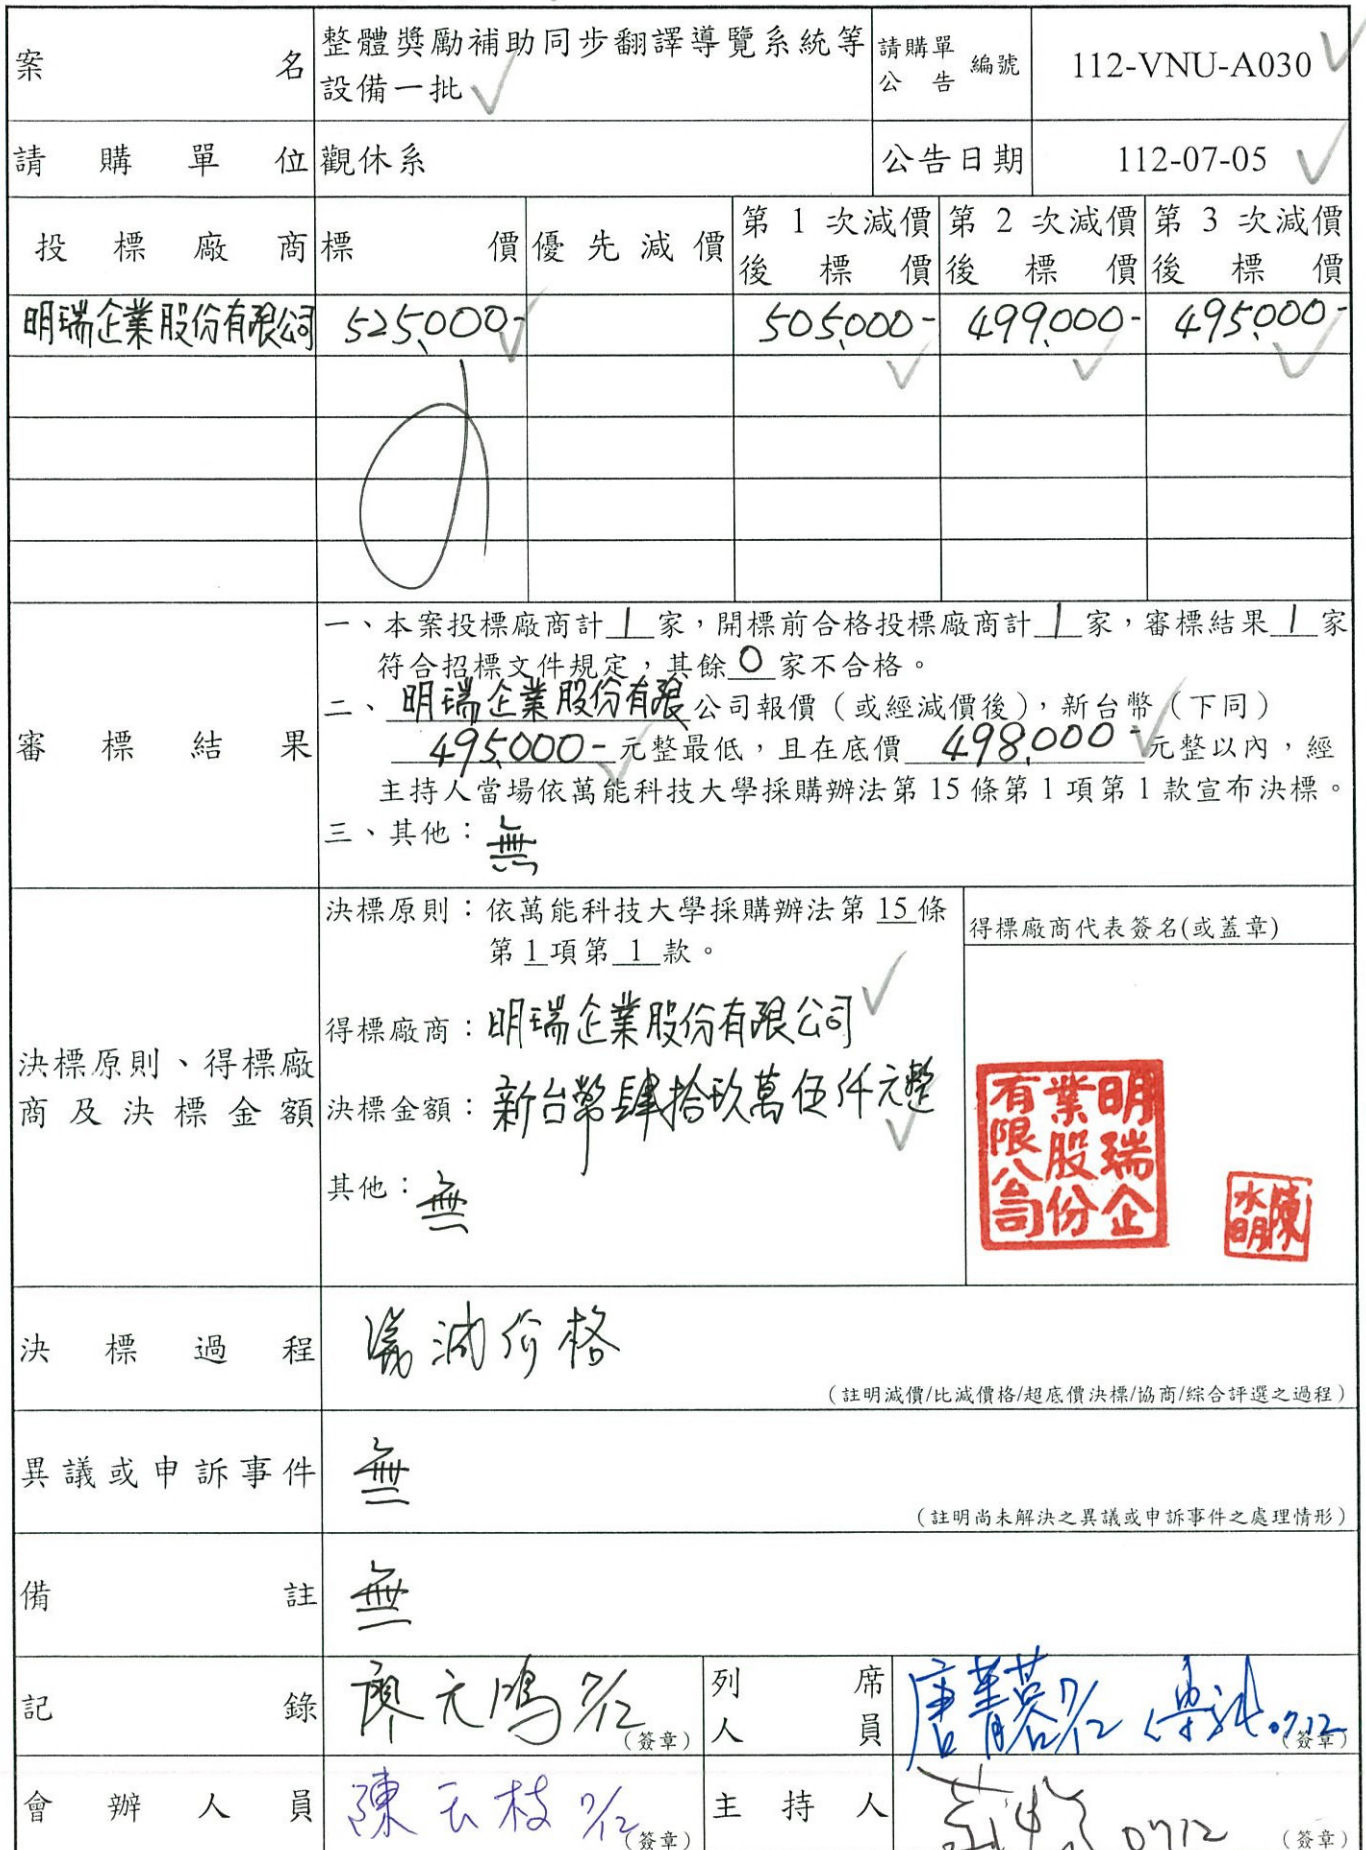 案名 整體獎勵補助同步翻譯導覽系統等
設備一批
請購單
公告 編號 112-VNU-A030
請購單位 觀休系 公告日期 112-07-05
投標廠商 標價 優先減價 第1次減價後標價 第2次減價後標價 第3次減價後標價
明瑞企業股份有限公司 525,000- 505,000- 499,000- 495,000-
審標結果
一、本案投標廠商計1家，開標前合格投標廠商計1家，審標結果1家
符合招標文件規定，其餘0家不合格。
二、明瑞企業股份有限公司報價（或經減價後），新台幣（下同）
495,000-元整最低，且在底價498,000-元整以內，經
主持人當場依萬能科技大學採購辦法第15條第1項第1款宣布決標。
三、其他：無
決標原則、得標廠
商及決標金額
決標原則：依萬能科技大學採購辦法第15條
第1項第1款。
得標廠商：明瑞企業股份有限公司
決標金額：新台幣肆拾玖萬伍仟元整
其他：無
得標廠商代表簽名(或蓋章)
明瑞企
業股份
有限公司
陳
水明
決標過程 議減价格
（註明減價/比減價格/超底價決標/協商/綜合評選之過程）
異議或申訴事件 無
（註明尚未解決之異議或申訴事件之處理情形）
備註 無
記錄 廖元鴻 7/12 （簽章）
列席
人員 唐菁蓉 7/12 0712 （簽章）
會辦人員 陳云枝 7/12 （簽章）
主持人 0712 （簽章）